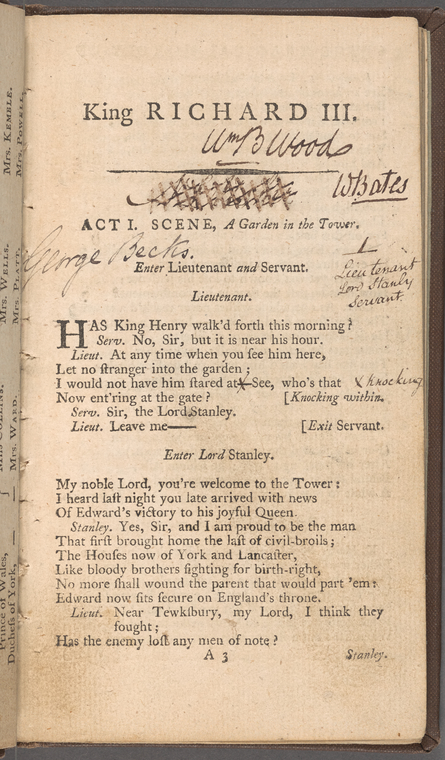 King RICHARD III.
Wm B Wood
WBates
ACT I. SCENE, A Garden in the Tower.
George Becks.
1
Enter Lieutenant and Servant.
Lieutenant
Lord Stanly
Servant
Lieutenant.
HAS King Henry walk'd forth this morning?
Serv. No, Sir, but it is near his hour.
Lieut. At any time when you ſee him here,
Let no ſtranger into the garden;
I would not have him ſtared at X See, who's that
X Knocking
Now ent'ring at the gate? [Knocking within.
Serv. Sir, the Lord Stanley.
Lieut. Leave me—— [Exit Servant.
Enter Lord Stanley.
My noble Lord, you're welcome to the Tower:
I heard laſt night you late arrived with news
Of Edward's victory to his joyful Queen.
Stanley. Yes, Sir, and I am proud to be the man
That firſt brought home the laſt of civil-broils;
The Houſes now of York and Lancaſter,
Like bloody brothers fighting for birth-right,
No more ſhall wound the parent that would part 'em:
Edward now ſits ſecure on England's throne.
Lieut. Near Tewkſbury, my Lord, I think they
fought;
Has the enemy loſt any men of note?
A 3 Stanley.
Mrs. KEMBLE.
Mrs. POWELL.
Mrs. WELLS.
Mrs. PLATT.
Mrs. WARD.
Prince of Wales,
Ducheſs of York,